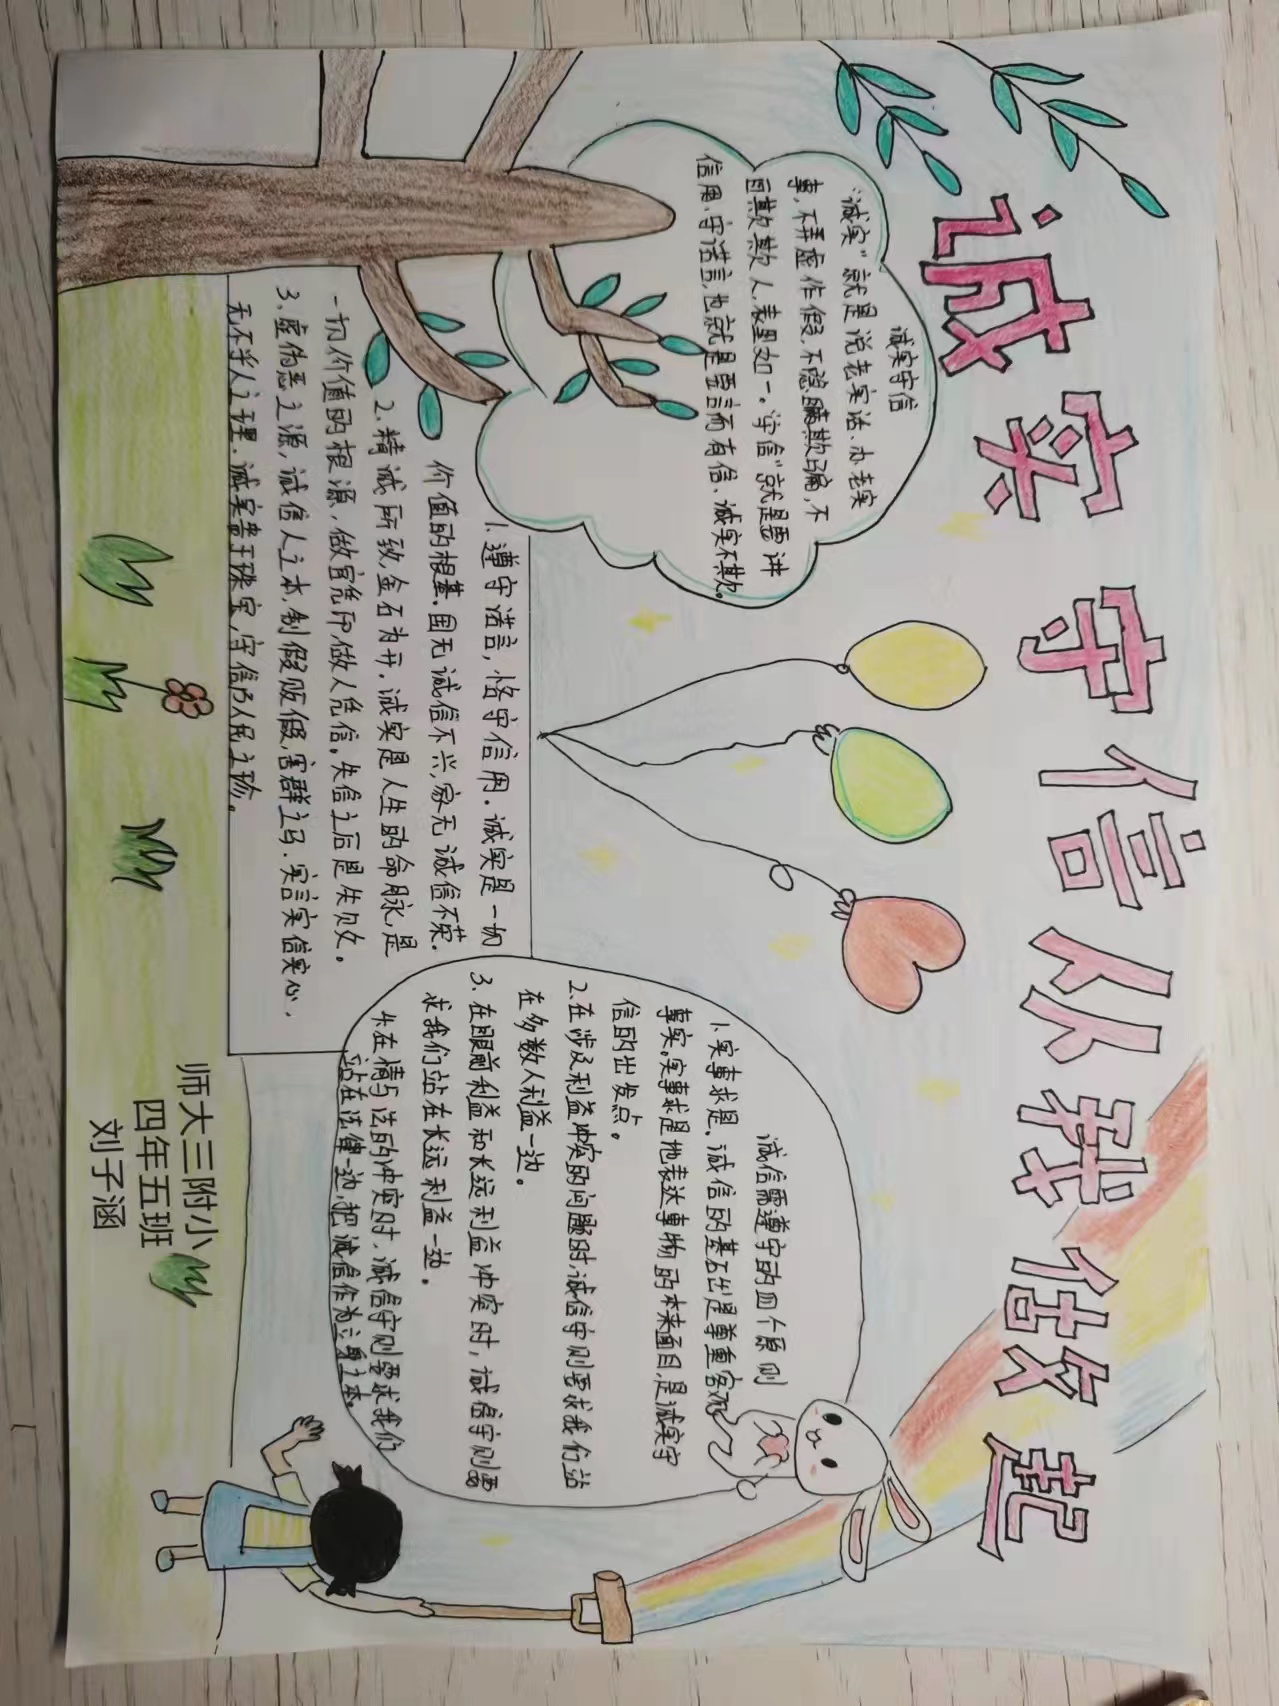 诚实守信从我做起
诚实守信
“诚实”就是说老实话、办老实
事,不弄虚作假,不隐瞒欺骗,不
自欺欺人,表里如一。“守信”就是要讲
信用,守诺言,也就是要言而有信、诚实不欺。
1.遵守诺言,恪守信用.诚实是一切
价值的根基.国无诚信不兴,家无诚信不荣.
2.精诚所致,金石为开.诚实是人生的命脉,是
一切价值的根源,做官先印做人先信。失信之后是失败。
3.虚伪恶之源,诚信人之本,制假贩假,害群之马.实言实信实心,
无不乎人之理.诚实贵于珠宝,守信乃人民之珍。
诚信需遵守的四个原则
1.实事求是。诚信的基石出是尊重客观
事实。实事求是地表达事物的本来面目,是诚实守
信的出发点。
2.在涉及利益冲突的问题时,诚信守则要求我们站
在多数人利益一边。
3.在眼前利益和长远利益冲突时,诚信守则要
求我们站在长远利益一边.
4.在情与法的冲突时,诚信守则要求我们
站在法律一边,把诚信作为立身之本。
师大三附小
四年五班
刘子涵